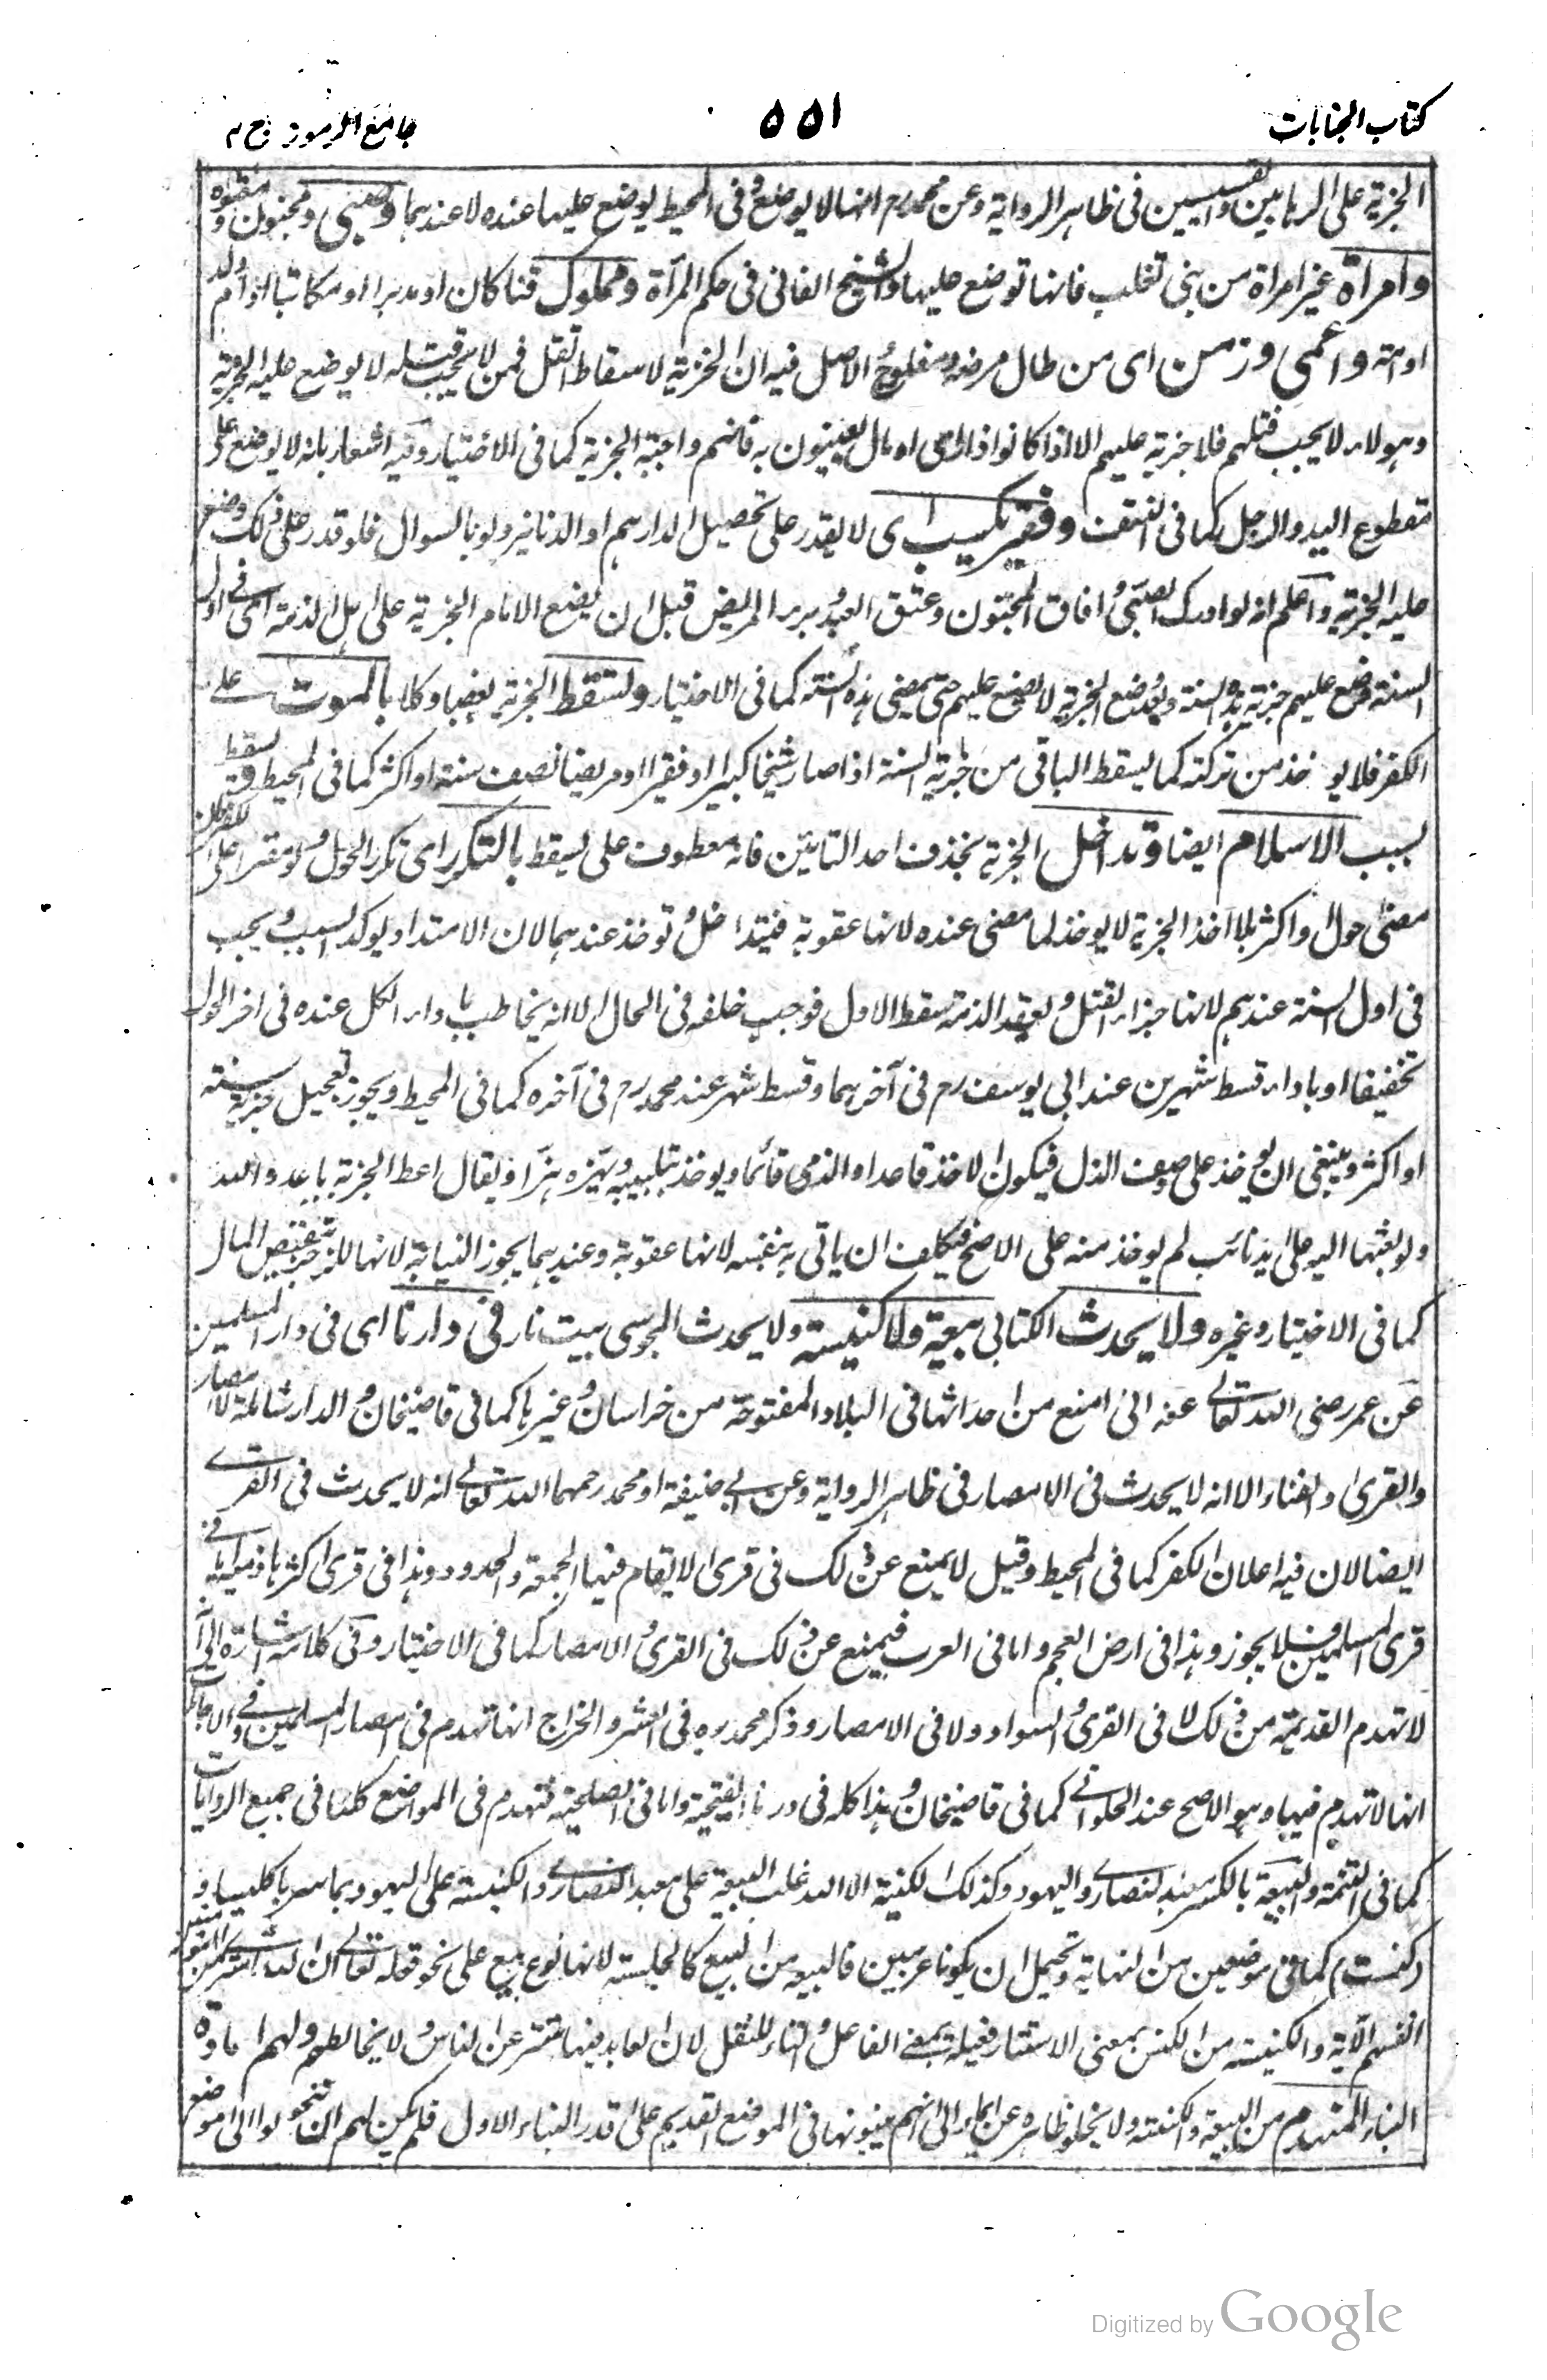 كتاب الجنايات
٥٥١
جامع الرموز ج ٢
الجزية على الرهابين والقسيسين فى ظاهر الرواية وعن محمد رح انها لا يوضع وفى المحيط يوضع عليها عنده لا عندهما وصبى ومجنون و معتوه
وامرأة غير امراة من بنى تغلب فانها توضع عليها والشيخ الفانى فى حكم المرآة ومملوك قنا كان او مدبرا او مكاتبا او ام ولد
او امة واعمى وزمن اى من طال مرضه ومفلوج الاصل فيه ان الجزية لاسقاط القتل فمن لا يجب قتله لا يوضع عليه الجزية
وهولاء لا يجب قتلهم فلا جزية عليهم الا اذا كانوا ذا راى او مال يعينون به فانهم واجبة الجزية كما فى الاختيار وفيه اشعار بانه لا يوضع على
مقطوع اليد والرجل كما فى وفقير يكسب اى لا يقدر على تحصيل الدارهم او الدنانير ولو بالسوال فلو قدر على ذلك وضع
عليه الجزية واعلم انه لو ادرك الصبى وافاق المجنون وعتق العبد وبرء المريض قبل ان يضع الامام الجزية على اهل الذمة اى فى اول
السنة وضع عليهم جزية هذه السنة وبعد وضع الجزية لا يوضع عليهم حتى يمضى هذه السنة كما فى الاختيار ولتسقط الجزية بعضا وكلا بالموت على
الكفر فلا يوخذ من تركته كما يسقط الباقى من جزية السنة اذا صار شيخا كبيرا او فقيرا او مريضا نصف سنة او اكثر كما فى المحيط و يسقط
بسبب الاسلام ايضا وتداخل الجزية بحذف احد التائين فانه معطوف على يسقط بالتكرر اى تكرر الحول ولو مقرا على الكفر فان
مضى حول او اكثر بلا اخذ الجزية لا يوخذ لما مضى عنده لانها عقوبة فيتداخل وتوخذ عندهما لان الامتداد يوكد السبب ويجب
فى اول السنة عندهم لانها جزاء القتل وبعقد الذمة سقط الاول فوجب خلفه فى الحال الا انه يخاطب باداء الكل عنده فى اخر الحول
تخفيفا او باداء قسط شهرين عند ابى يوسف رح فى آخرهما وقسط شهر عند محمد رح فى آخره كما فى المحيط ويجوز تعجيل جزية سنته
او اكثر وينبغى ان يوخذ على وصف الذل فيكون الاخذ قاعدا والذمى قائما ويوخذ بتلبيبه ويهزه هزا ويقال اعط الجزية يا عدو الله
ولو بعثها اليه على يد نائب لم يوخذ منه على الاصح فيكلف ان ياتى به بنفسه لانها عقوبة وعندهما يجوز النيابة لانها للزجر بتنقيص المال
كما فى الاختيار وغيره ولا يحدث الكتابى بيعة ولا كنيسة ولا يحدث المجوسى بيت نار فى دارنا اى فى دار المسلمين
عن عمر رضى الله تعالى عنه انى امنع من احداثها فى البلاد المفتوحة من خراسان وغيرها كما فى قاضيخان والدار شاملة للامصار
والقرى والفناء الا انه لا يحدث فى الامصار فى ظاهر الرواية وعن ابى حنيفة او محمد رحمهما الله تعالى انه لا يحدث فى القرى
ايضا لان فيه اعلان الكفر كما فى المحيط وقيل لا يمنع عن ذلك فى قرى لا يقام فيها الجمعة والحدود وهذا فى قرى اكثرها ذميون اما فى
قرى المسلمين فلا يجوز وهذا فى ارض العجم واما فى العرب فيمنع عن ذلك فى القرى والامصار كما فى الاختيار وفى كلامه اشارة الى ان
لا تهدم القديمة من ذلك لا فى القرى والسواد ولا فى الامصار وذكر محمد ره فى العشر والخراج انها تهدم فى امصار المسلمين وفى الاجارات
انها لا تهدم فيها وهو الاصح عند الحلوانى كما فى قاضيخان وهذا كله فى دارنا الفتحية واما فى الصلحية فتهدم فى المواضع كلها فى جميع الروايات
كما فى التتمة والبيعة بالكسر معبد النصارى واليهود وكذلك الكنيسة الا انه غلب البيعة على معبد النصارى والكنيسة على اليهود
كما فى موضعين من النهاية ويحتمل ان يكونا عربيين فالبيعة من البيع كالجلسة لانها نوع بيع على نحو قوله تعالى ان الله اشترى من المؤمنين
انفسهم الآية والكنيسة من الكنس بمعنى الاستتار فعيلة بمعنى الفاعل والتاء للنقل لان العابد فيها يتستر عن الناس ولا يخالطهم ولهم اعادة
البناء المنهدم من البيعة والكنيسة ولا يخلو ظاهره عن ايماء الى انهم يبنونها فى الموضع القديم على قدر البناء الاول فلم يكن لهم ان يتحولوا الى موضع
Digitized by Google